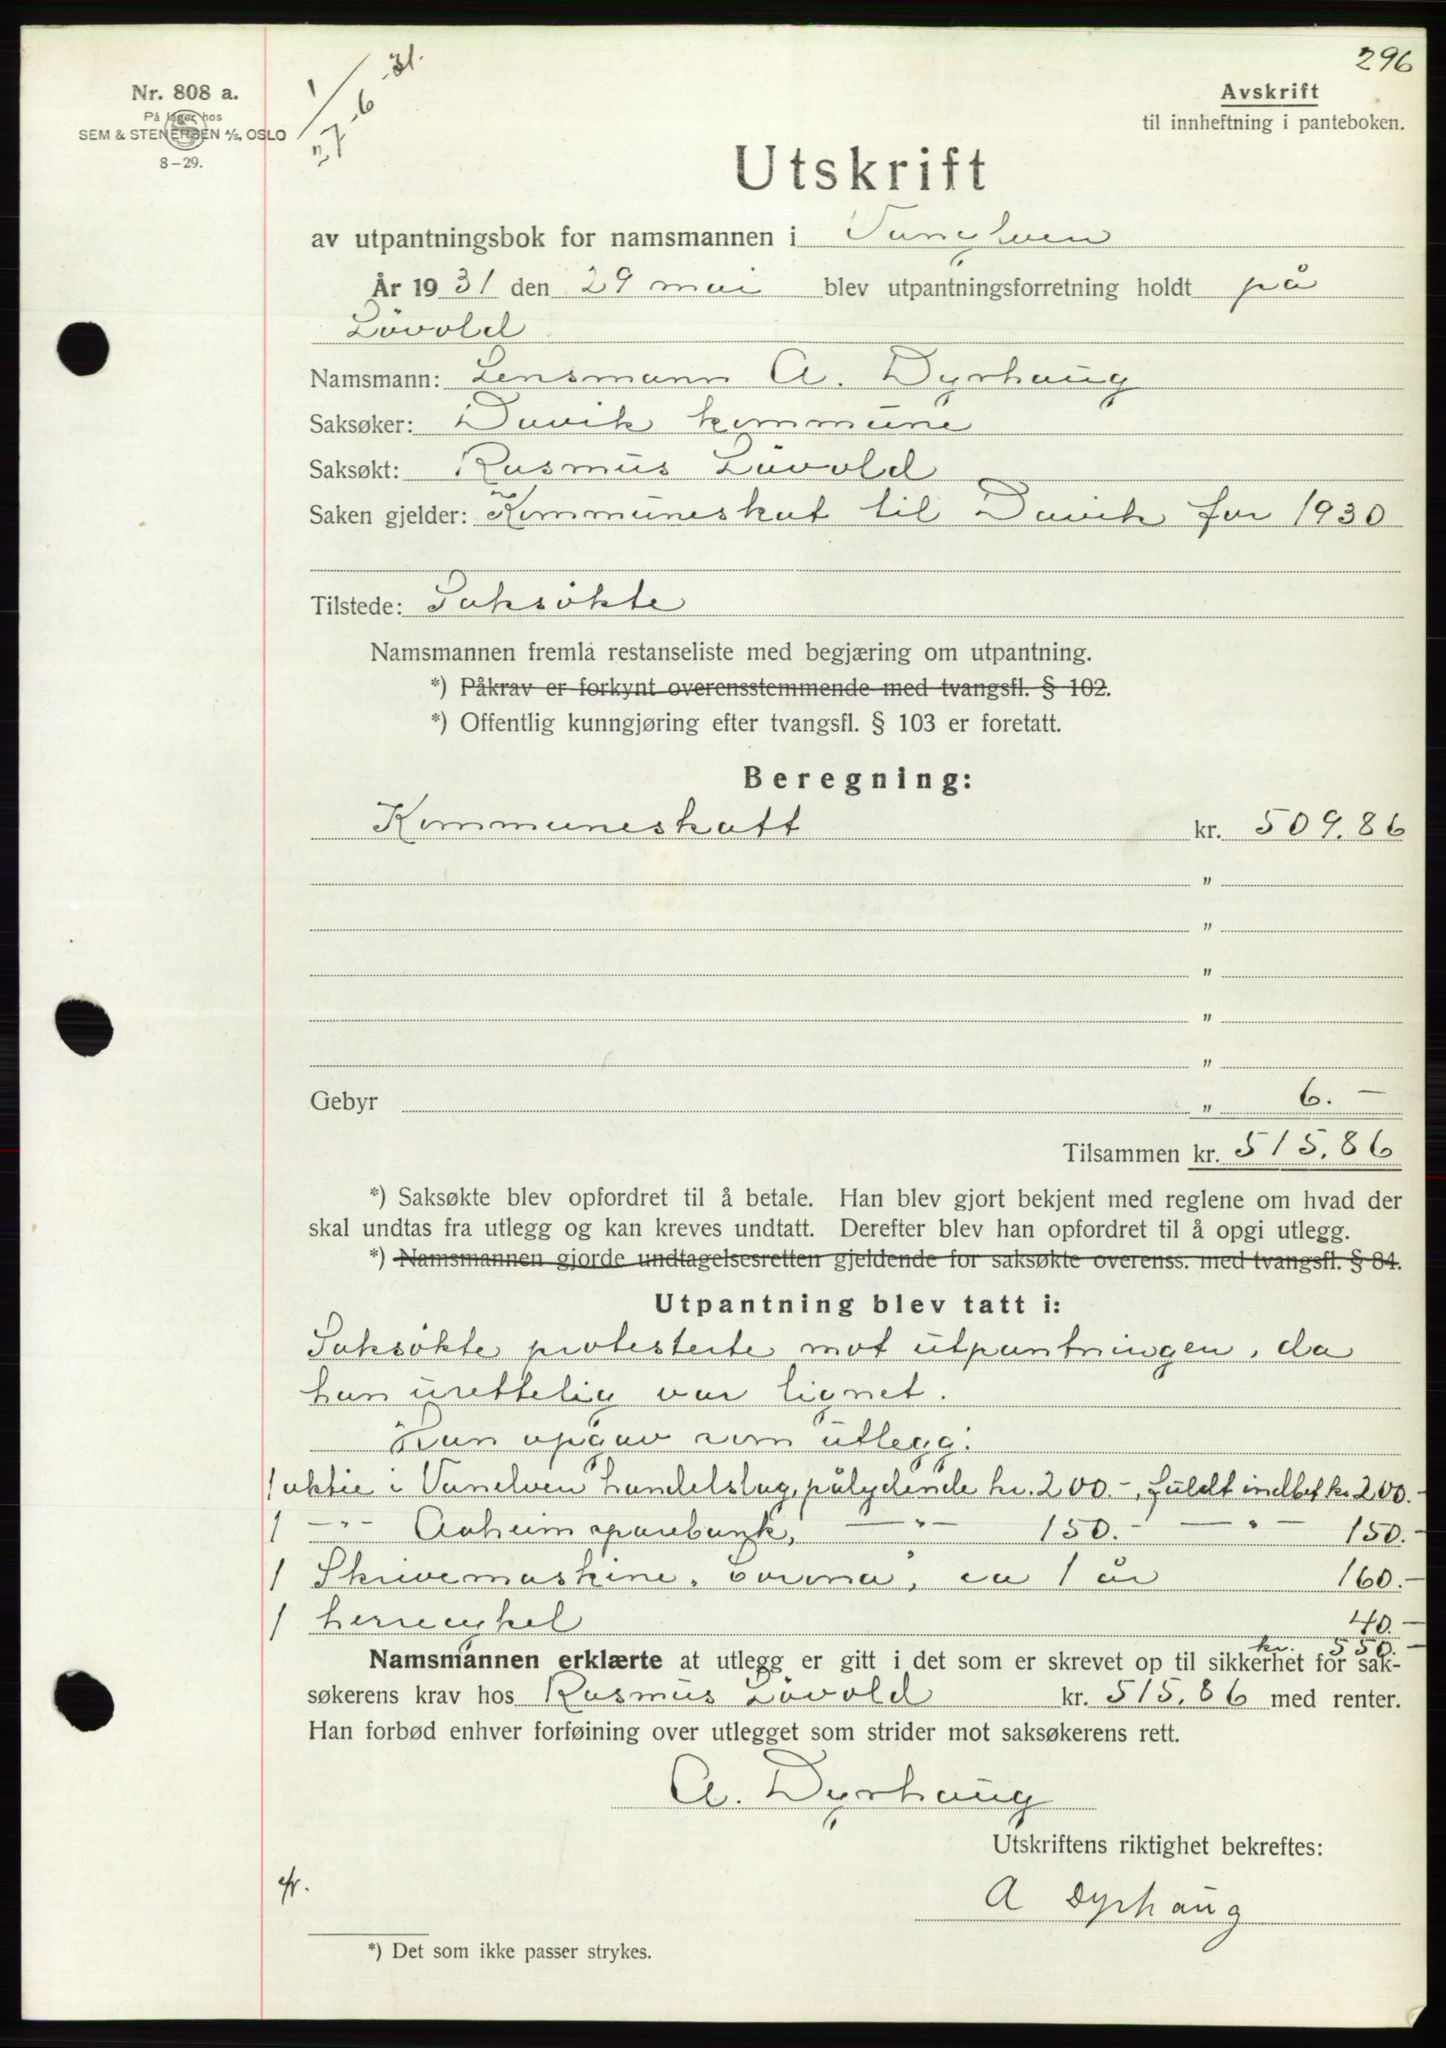 296
Nr. 808 a.
På lager hos
SEM & STENERSEN A/S, OSLO
8–29.
1/7-6-31.
Avskrift
til innheftning i panteboken.
Utskrift
av utpantningsbok for namsmannen i Vanelven
År 1931 den 29 mai blev utpantningsforretning holdt på
Lövold
Namsmann: Lensmann A. Dyrhaug
Saksøker: Davik kommune
Saksøkt: Rasmus Lövold
Saken gjelder: Kommuneskat til Davik for 1930
Tilstede: Saksökte
Namsmannen fremla restanseliste med begjæring om utpantning.
*) Påkrav er forkynt overensstemmende med tvangsfl. § 102.
*) Offentlig kunngjøring efter tvangsfl. § 103 er foretatt.
Beregning:
Kommuneskatt kr. 509.86
"
"
"
"
"
Gebyr " 6. —
Tilsammen kr. 515.86
*) Saksøkte blev opfordret til å betale. Han blev gjort bekjent med reglene om hvad der
skal undtas fra utlegg og kan kreves undtatt. Derefter blev han opfordret til å opgi utlegg.
*) Namsmannen gjorde undtagelsesretten gjeldende for saksøkte overenss. med tvangsfl. § 84.
Utpantning blev tatt i:
Saksökte protesterte mot utpantningen, da
han urettelig var lignet.
Han opgav som utlegg:
1 aktie i Vanelven handelslag, pålydende kr. 200.-, fuldt indbet kr 200.-
1 —"— Aaheim sparebank, —"— 150.- —"— 150.-
1 Skrivemaskine, Corona, ca 1 år 160.-
1 herrecykel 40.-
kr. 550.-
Namsmannen erklærte at utlegg er gitt i det som er skrevet op til sikkerhet for sak-
søkerens krav hos Rasmus Lövold kr. 515.86 med renter.
Han forbød enhver forføining over utlegget som strider mot saksøkerens rett.
A. Dyrhaug
Utskriftens riktighet bekreftes:
A Dyrhaug
*) Det som ikke passer strykes.